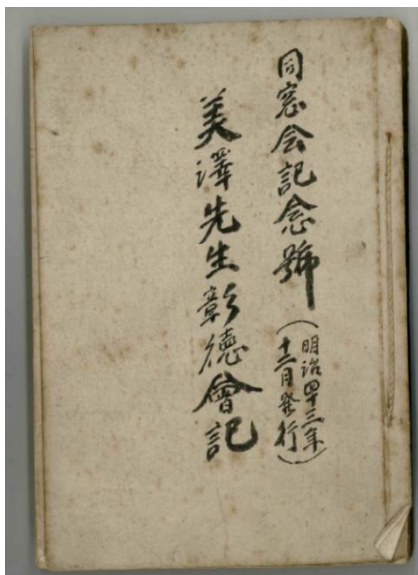 同窓会記念號（明治四十三年
十二月発行）
美澤先生彰徳會記